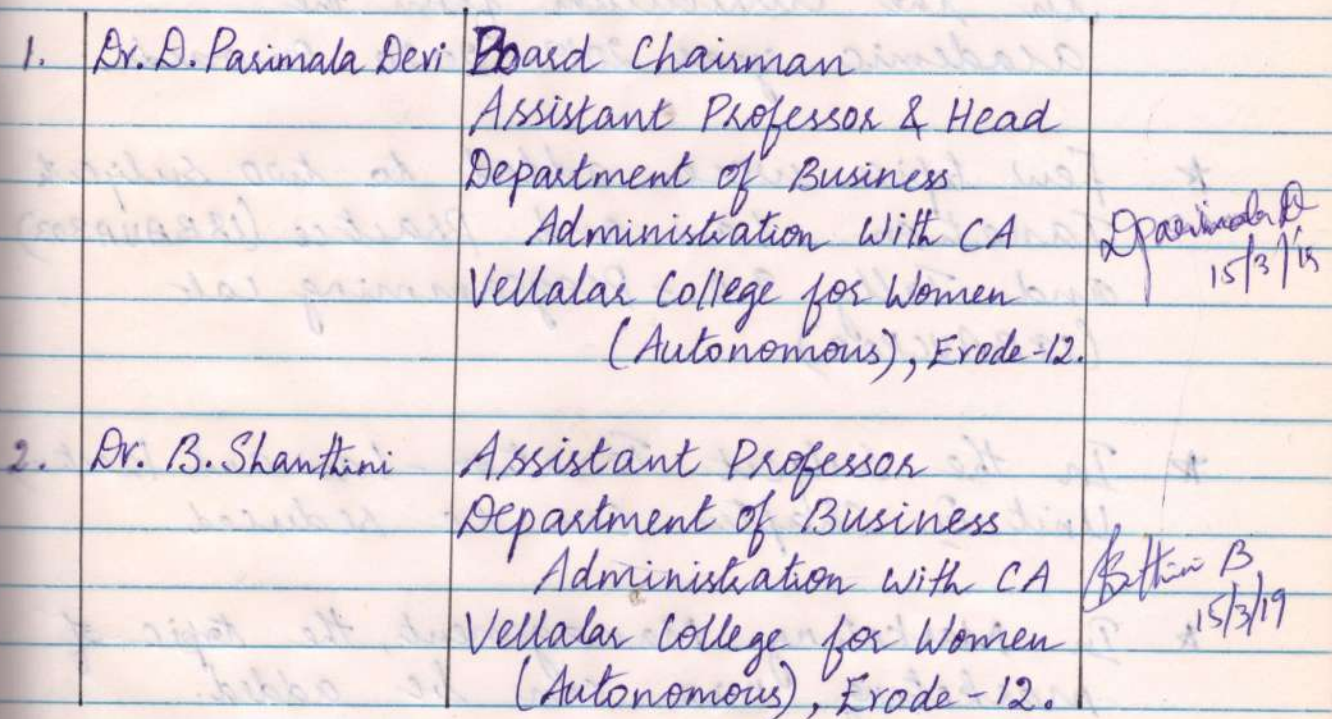 1. Dr. D. Parimala Devi Board Chairman
Assistant Professor & Head
Department of Business
Administration With CA
Vellalar College for Women
(Autonomous), Erode-12.
15/3/19
2. Dr. B. Shanthini Assistant Professor
Department of Business
Administration with CA
Vellalar College for Women
(Autonomous), Erode-12.
15/3/19